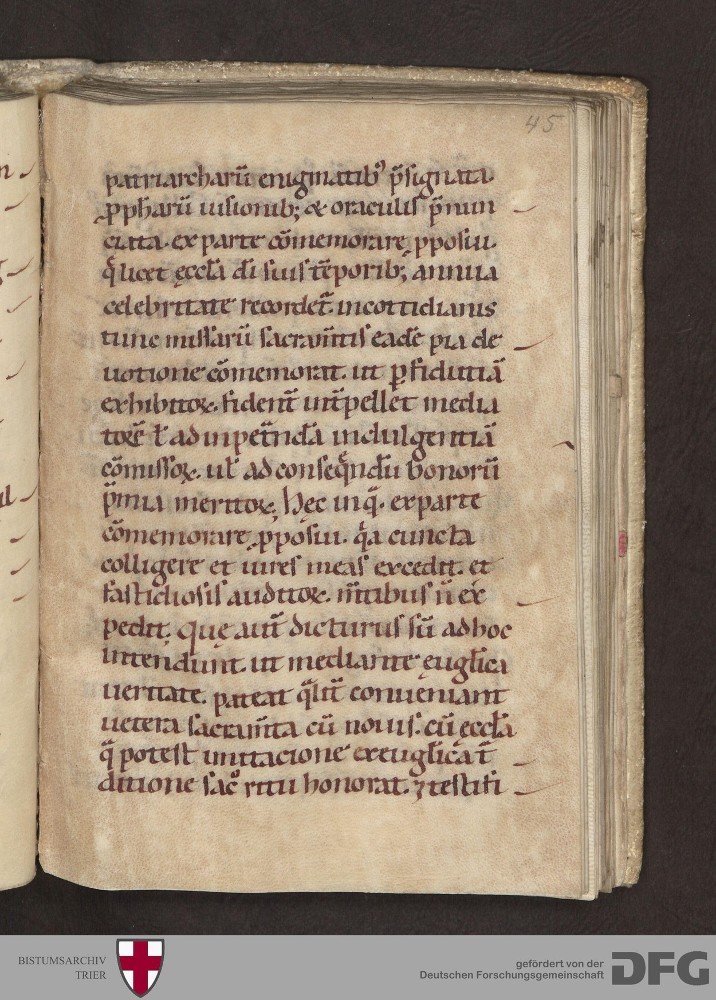 45
patriarcharū enigmatib⁹ p̄signata
ꝓpħarū uisionib; & oraculis p̄nun
ciata. ex parte cōmemorare ꝓposui.
q̄ licet ęccla̅ di̅ suis te̅porib; annua
celebritate recordet̅. in cottidianis
tunc missarū sacram̅tis eade̅ pia de
uotione cōmemorat. ut ꝑ fidutiā
exhibitoꝝ. fident̅ int̅pellet media
tore̅ ad inpet̅nda̅ indulgentiā
cōmissoꝝ. ul̅ ad conseq̅ndu̅ bonorū
p̅mia meritoꝝ. Hec inq̅. ex parte
cōmemorare ꝓposui. q̅a cuncta
colligere et uires meas excedit. et
fastidiosis auditoꝝ. m̅tibus n̅ ex
pedit. Que aut̅ dicturus su̅ ad hoc
intendunt. ut mediante euglica
ueritate. pateat q̅lit̅ conueniant
uetera sacram̅ta cū nouis. cū ęccla̅
q̅ potest imitacione ex euglica t̅
ditione sac̊ ritu honorat. ⁊ testifi
BISTUMSARCHIV
TRIER
gefördert von der
Deutschen Forschungsgemeinschaft
DFG